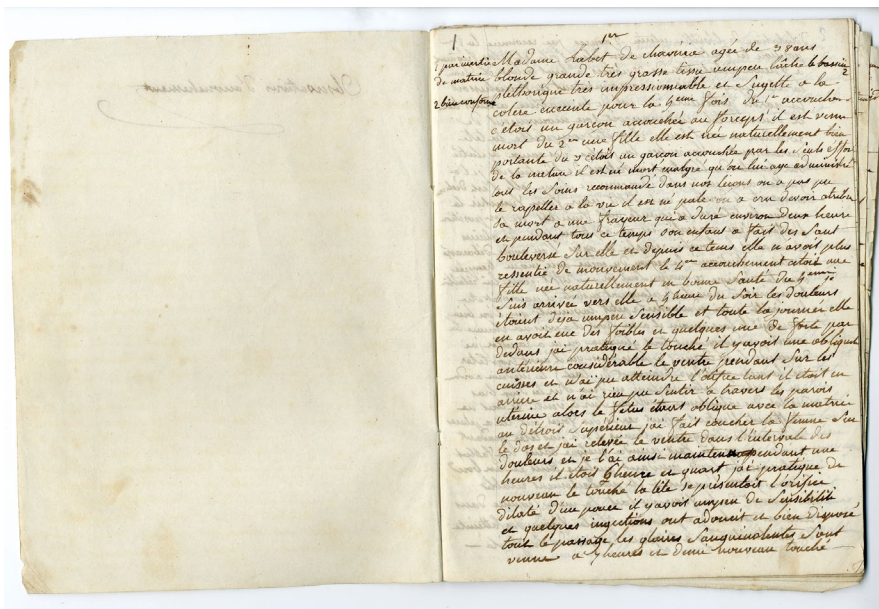 1
1er
Madame habet de agée de 38 ans
1 par inertie
de matrice
2 bien conformé
blonde grande très grasse tissu un peu lâche le bassin 2
plethorique très impressionnable et Sugette a la
colere enceinte pour la 5eme fois du 1er accouchem
c'etois un garçon accouchée au forceps 1 il est venu
mort du 2me une fille elle est née naturellement bien
portante du 3 c'étois un garçon accouchée par les Seuls effor
de la nature il est né mort malgré qu'on lui aye administré
tous les Soins recommandé dans nos leçons on a pas pu
le rappeller a la vie il est né pale on a cru devoir atribuer
sa mort a une frayeur qui a duré environ deux heure
et pendant tous ce temps son enfant a fait des Saut
boulversé Sur elle et depuis ce tems elle n'avoit plus
ressentie de mouvement le 4me accouchement étoit une
fille née naturellement en bonne Santé du 5eme je
Suis arrivée vers elle a 4 heure du Soir les douleurs
étoient deja un peu Sensible et toute la journer elle
en avoit eue des foibles et quelques une de forte par
dedans j'ai pratiqué le touché il y avoit une obliquité
antérieure considérable le ventre pendant Sur les
cuisses et n'ai pu atteindre l'orifice tant il étoit en
arriere et n'ai rien pu Sentir a travers les parois
uterine alors le fetus étant oblique avec la matrice
au Détroit Supérieur j'ai fait coucher la femme Sur
le dos et j'ai relevée le ventre dans l'interval des
douleurs et je l'ai ainsi maintenu pendant une
heures il étoit 6 heure et quart j'ai pratiqué de
nouveau le touche la tête se présentoit l'orifice
dilaté d'un pouce il y avoit un peu de Sensibilité
et quelques ingections ont adoucit et bien disposé
tout le passage les glaires Sanguinolentes Sont
venue a 7 heures et demie nouveau touché